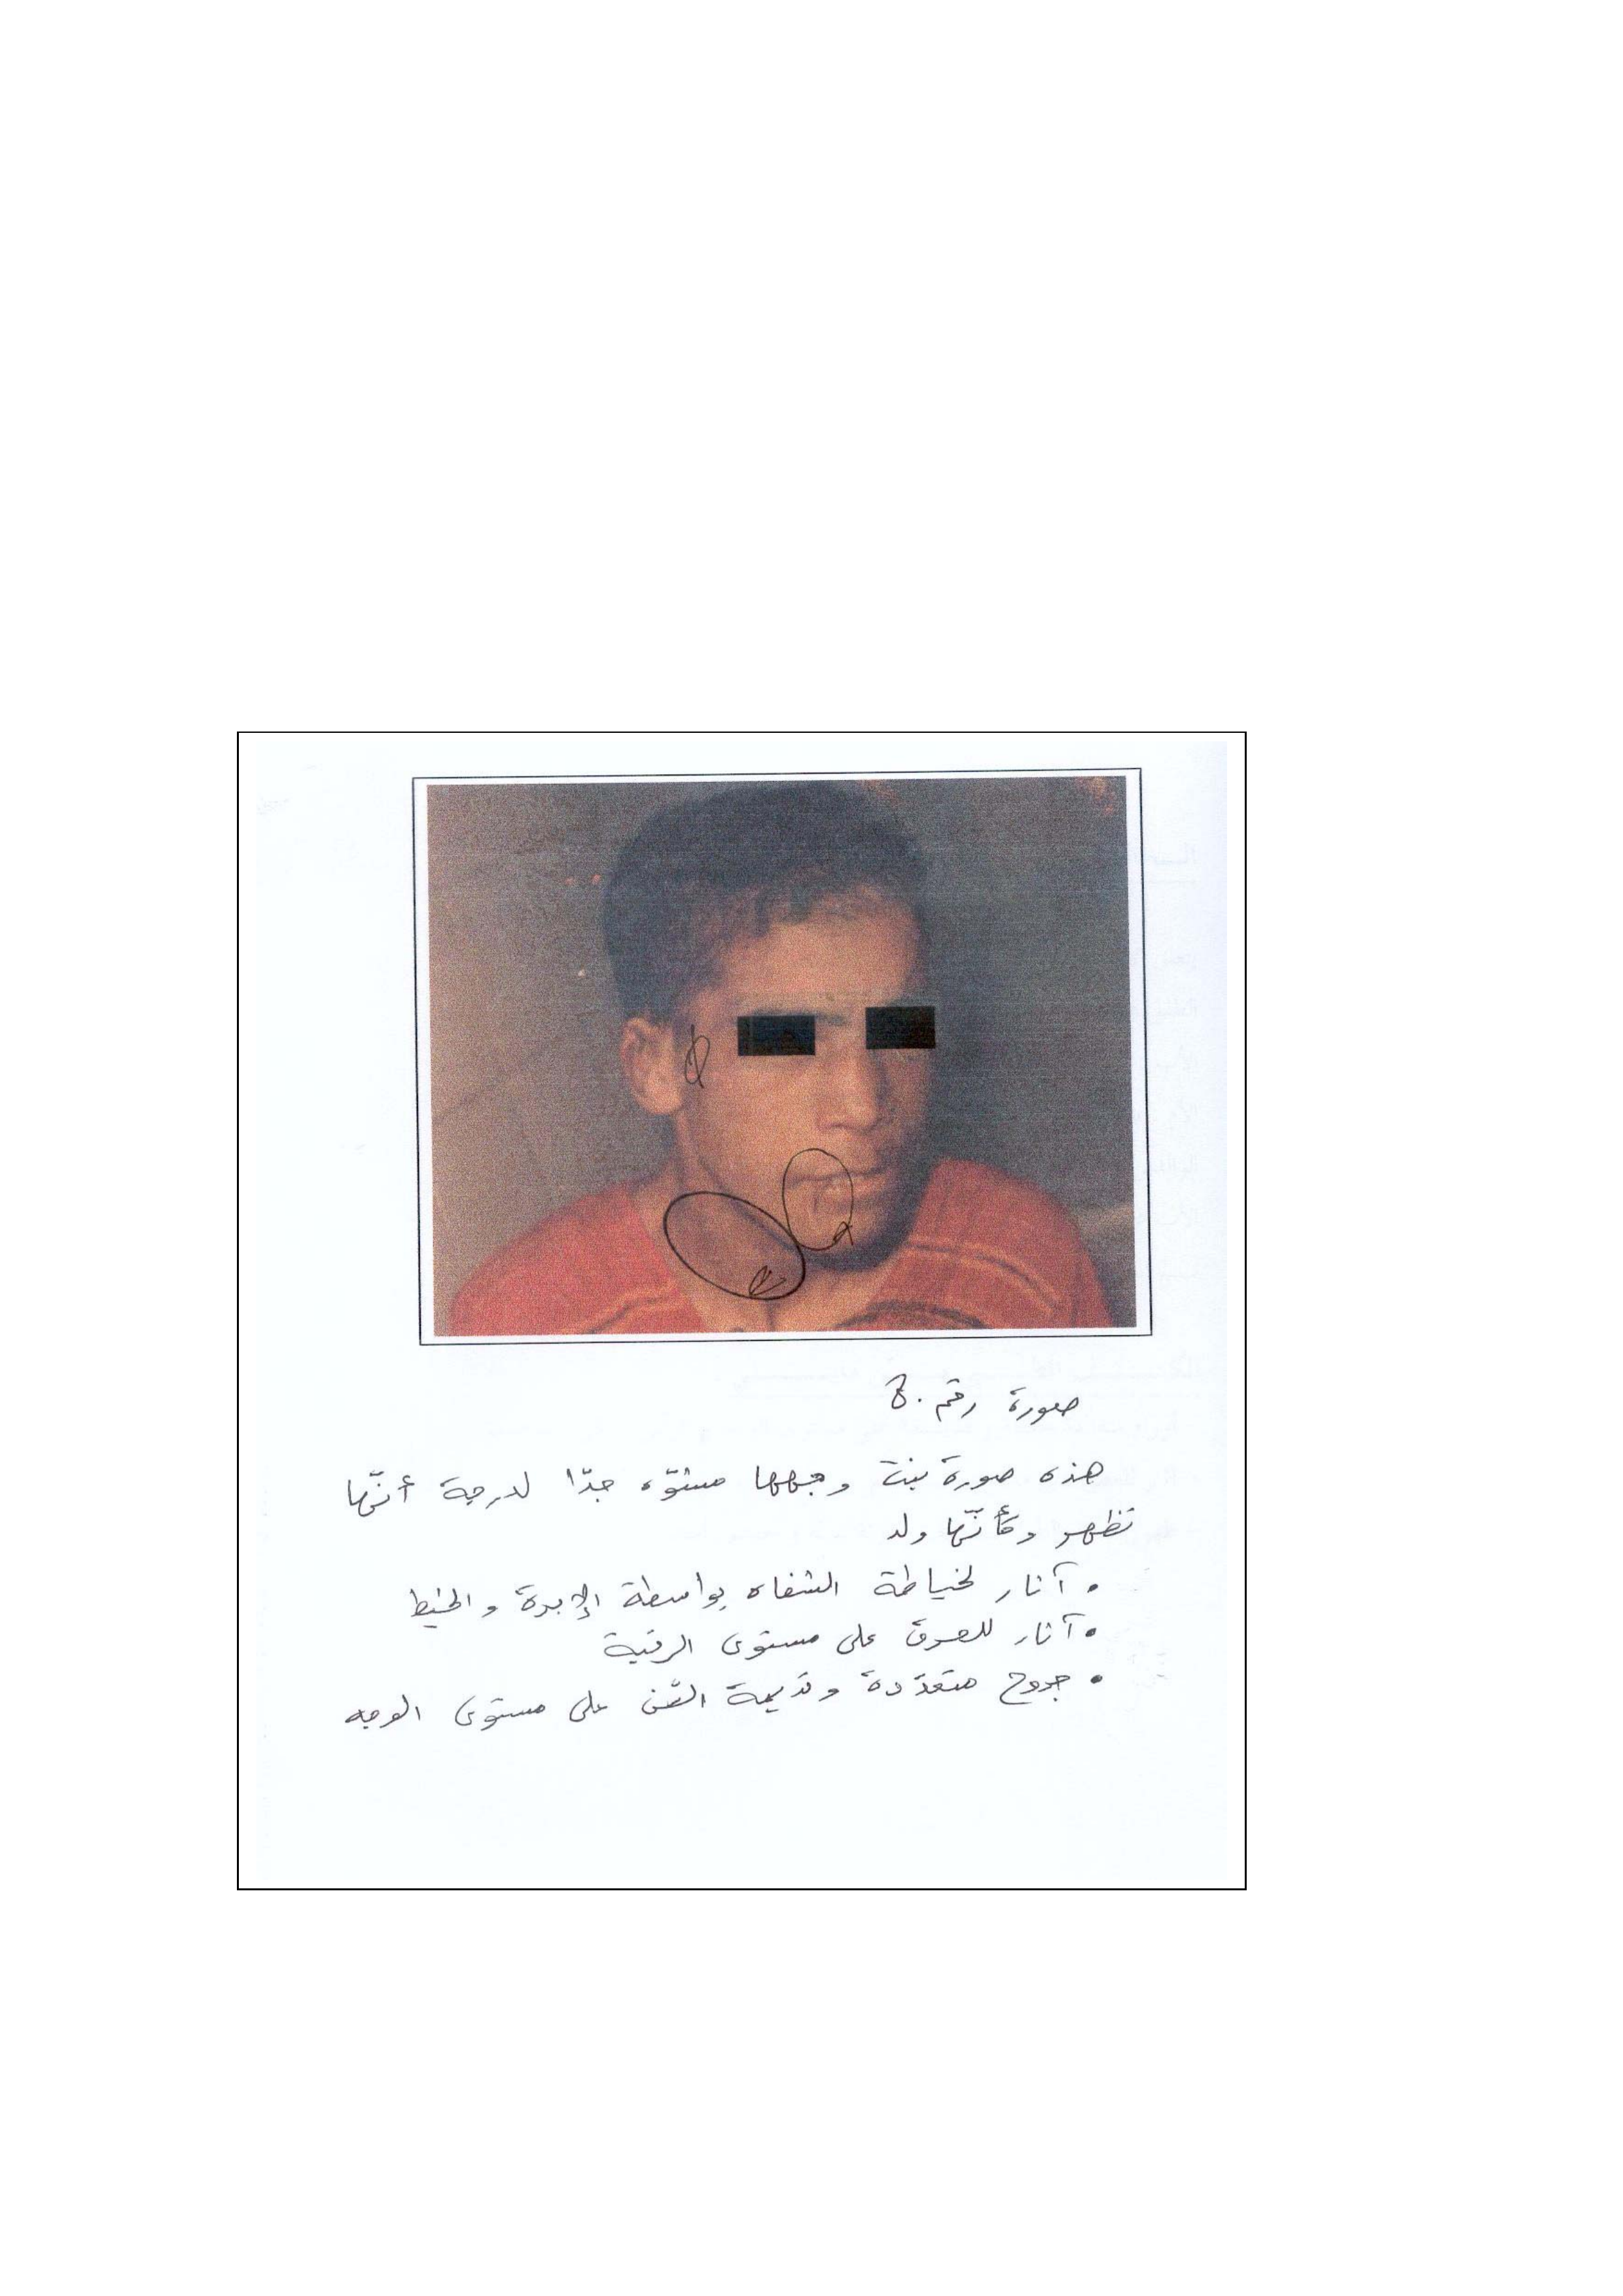 صورة رقم 8.
هذه صورة بنت وجهها مشوّه جدّا لدرجة أنّها
تظهر وكأنّها ولد
• آثار لخياطة الشفاه بواسطة الإبرة والخيط
• آثار للحرق على مستوى الرقبة
• جروح متعدّدة وقديمة السّن على مستوى الوجه